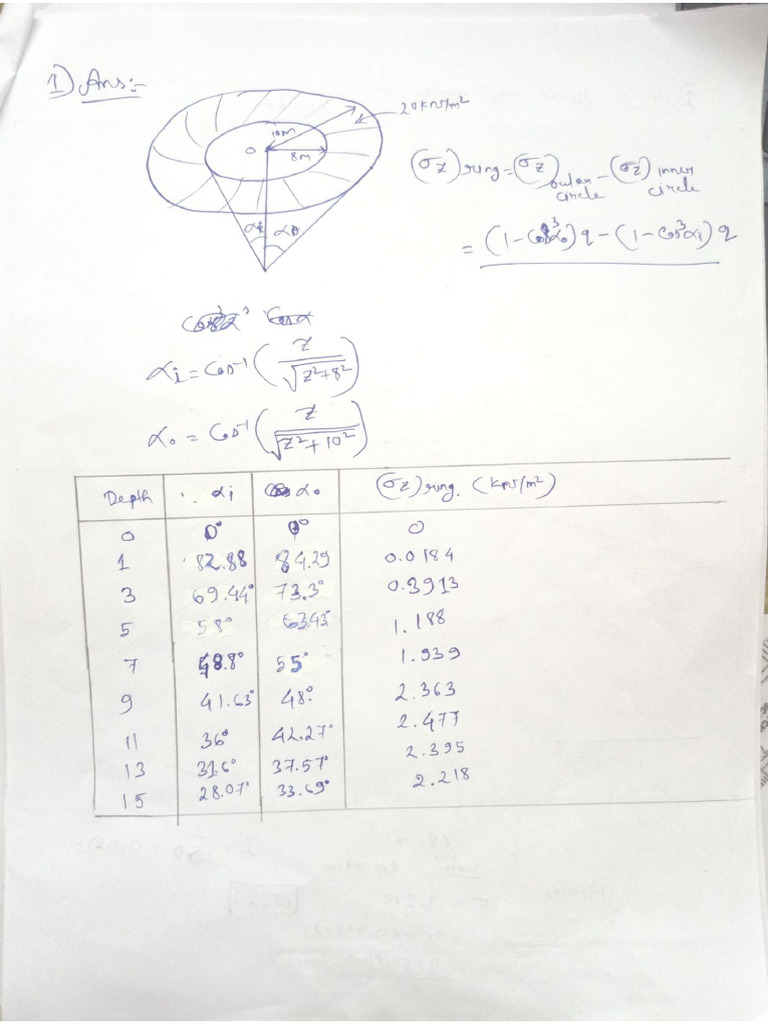 1) Ans:-
20 KN/m²
10m
O
8m
αi αo
(σz) ring = (σz) outer circle - (σz) inner circle
= (1 - Cos³αo) q - (1 - Cos³αi) q
αi = Cos⁻¹ ( z / √z²+8² )
αo = Cos⁻¹ ( z / √z²+10² )
Depth αi αo (σz) ring. (KN/m²)
0 0° 0° 0
1 82.88 84.29 0.0184
3 69.44° 73.3° 0.3913
5 58° 63.43° 1.188
7 48.8° 55° 1.939
9 41.63° 48° 2.363
11 36° 42.27° 2.477
13 31.6° 37.57° 2.395
15 28.07° 33.69° 2.218